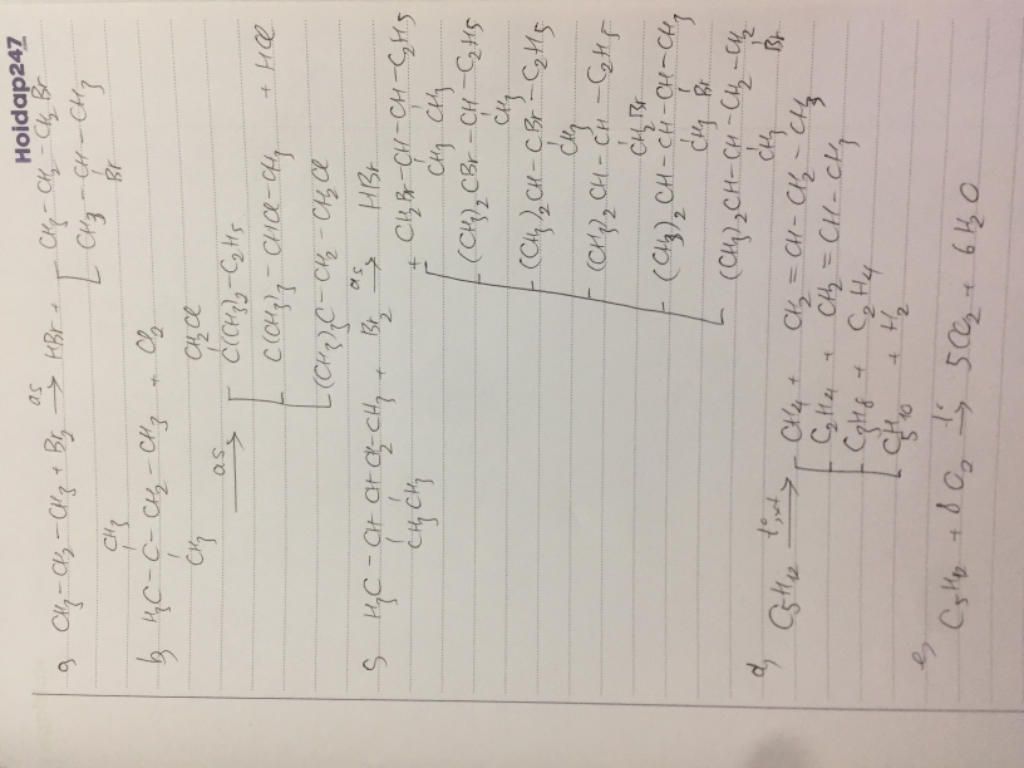 Hoidap247
a, CH3-CH2-CH3 + Br2 as→ HBr + [ CH3-CH2-CH2Br
CH3-CH-CH3
Br
CH3
b, H3C-C-CH2-CH3 + Cl2
CH3
CH2Cl
as→ [ C(CH3)2-C2H5
C(CH3)3-CHCl-CH3 + HCl
(CH3)3C-CH2-CH2Cl
c, H3C-CH-CH-CH2-CH3 + Br2 as→ HBr
CH3 CH3
+ CH2Br-CH-CH-C2H5
CH3 CH3
(CH3)2CBr-CH-C2H5
CH3
(CH3)2CH-CBr-C2H5
CH3
(CH3)2CH-CH-C2H5
CH2Br
(CH3)2CH-CH-CH-CH3
CH3 Br
(CH3)2CH-CH-CH2-CH2
CH3 Br
d, C5H12 t°,xt→ [ CH4 + CH2=CH-CH2-CH3
C2H4 + CH2=CH-CH3
C3H8 + C2H4
C5H10 + H2
e,
C5H12 + 8O2 t°→ 5CO2 + 6H2O